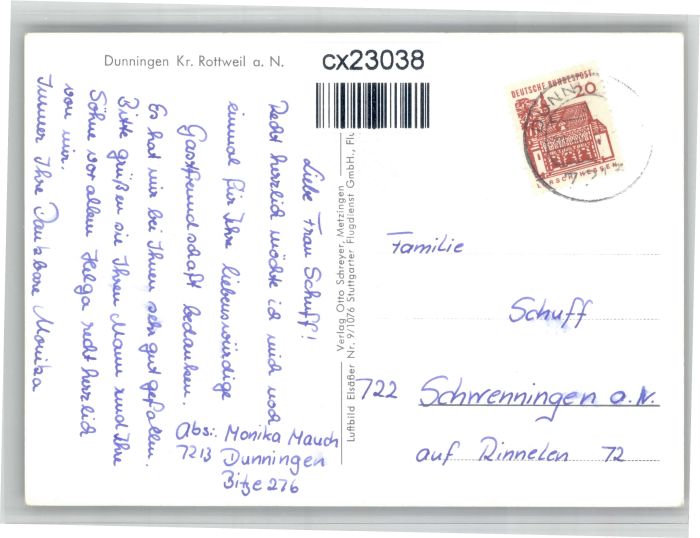 Dunningen Kr. Rottweil a. N.
cx23038
Liebe Frau Schuff!
Recht herzlich möchte ich mich noch
einmal für Ihre liebenswürdige
Gastfreundschaft bedanken.
Es hat mir bei Ihnen sehr gut gefallen.
Bitte grüßen sie Ihren Mann und Ihre
Söhne vor allem Helga recht herzlich
von mir.
Immer Ihre Dankbare Monika
Abs.: Monika Mauch
7213 Dunningen
Bitze 276
Verlag Otto Schreyer, Metzingen
Luftbild Elsäßer Nr. 9/1076 Stuttgarter Flugdienst GmbH., Flu
DEUTSCHE BUNDESPOST
20
LORSCH/HESSEN
Familie
Schuff
722 Schwenningen a.N.
auf Rinnelen 72